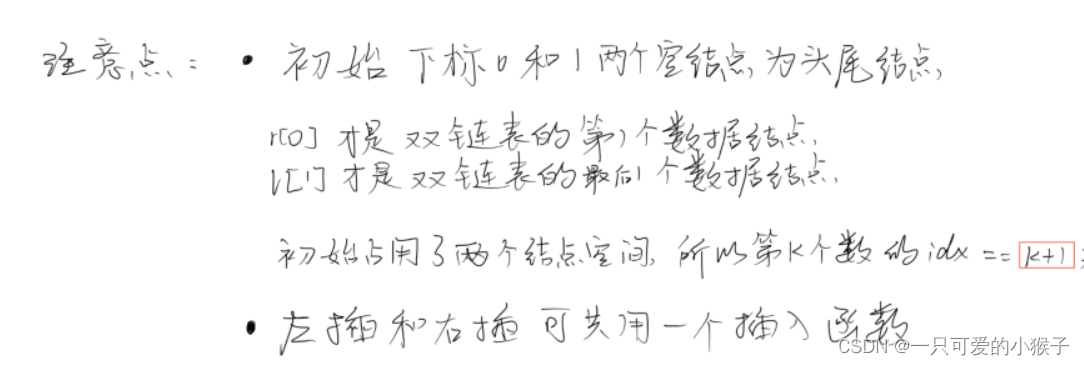 注意点: • 初始 下标0和1两个空结点,为头尾结点,
r[0] 才是 双链表的第1个数据结点,
l[1] 才是 双链表的最后1个数据结点,
初始占用了两个结点空间, 所以第k个数的idx == k+1
• 左插和右插 可共用一个插入函数
CSDN @一只可爱的小猴子